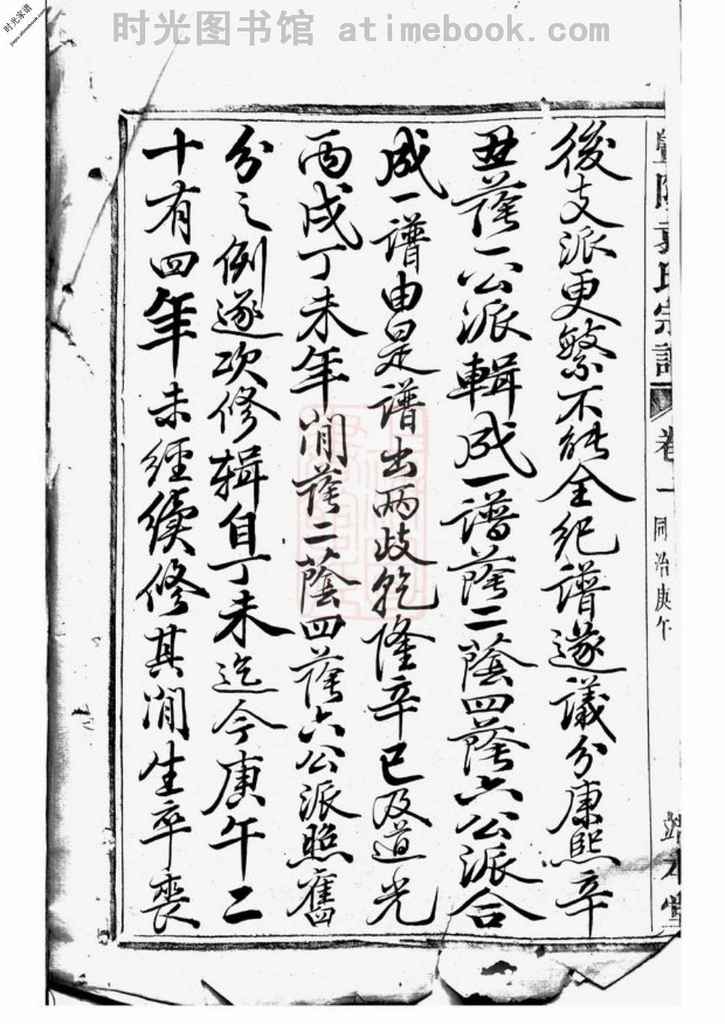 时光图书馆 atimebook.com
时光家谱
袁氏宗譜
卷一
同治庚午
後支派更繁不能全紀譜遂議分康熙辛
丑蔭一公派輯成一譜蔭二蔭四蔭六公派合
成一譜由是譜出兩歧乾隆辛巳及道光
丙戌丁未年間蔭二蔭四蔭六公派照舊
分之例遂次修輯自丁未迄今庚午二
十有四年未經續修其間生卒喪